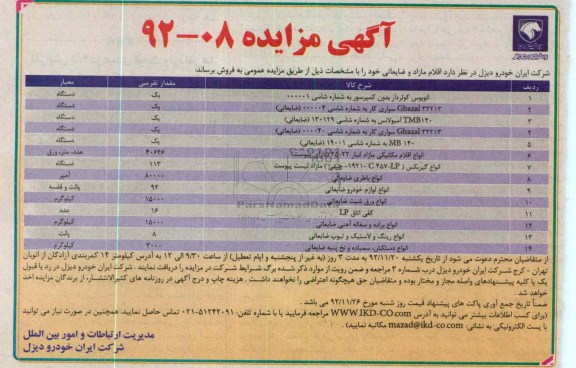 آگهی مزایده ۰۸-۹۲
شرکت ایران خودرو دیزل در نظر دارد اقلام مازاد و ضایعاتی خود را با مشخصات ذیل از طریق مزایده عمومی به فروش برساند:
ردیف شرح کالا مقدار تقریبی معیار
۱ اتوبوس کولردار بدون کمپرسور به شماره شاسی ۰۰۰۰۰۱ یک دستگاه
۲ Ghazal ۳۲۲۱۳ سواری کار به شماره شاسی ۰۰۰۰۰۴ (ضایعاتی) یک دستگاه
۳ TMB۱۴۰ آمبولانس به شماره شاسی ۱۳۰۱۲۹ (ضایعاتی) یک دستگاه
۴ Ghazal ۳۲۲۱۳ سواری کار به شماره شاسی ۰۰۰۰۴۰ (ضایعاتی) یک دستگاه
۵ MB ۱۴۰ به شماره شاسی ۱۹۰۰۱ (ضایعاتی) یک دستگاه
۶ انواع اقلام مکانیکی مازاد انبار ۲۲-۲۵ ۴۰۶۴۶ عدد، متر، ورق
۷ انواع گیربکس (C ۴۵۷-LP -۱۹۲۱- ) مازاد لیست پیوست ۱۱۳ دستگاه
۸ انواع باطری ضایعاتی ۸۰۰۰۰ آمپر
۹ انواع لوازم خودرو ضایعاتی ۹۲ پالت و قفسه
۱۰ انواع ورق شیت ضایعاتی ۱۵۰۰۰ کیلوگرم
۱۱ کفی اتاق LP ۱۶ عدد
۱۲ انواع براده و سفاله آهنی ضایعاتی ۱۵۰۰۰ کیلوگرم
۱۳ انواع رینگ و لاستیک و تیوپ ضایعاتی ۸ پالت
۱۴ انواع دستکش، سمباده و نخ پنبه ضایعاتی ۳۰۰۰ کیلوگرم
ParsNamadData
از متقاضیان محترم دعوت می شود از تاریخ یکشنبه ۹۲/۱۱/۲۰ به مدت ۳ روز (به غیر از پنجشنبه و ایام تعطیل) از ساعت ۹/۳۰ الی ۱۲ به آدرس کیلومتر ۱۴ کمربندی آزادگان از اتوبان
تهران - کرج شرکت ایران خودرو دیزل درب شماره ۳ مراجعه و ضمن رویت از موارد ذکر شده برگ شرایط شرکت در مزایده را دریافت نمایند. شرکت ایران خودرو دیزل در رد یا قبول
یک یا کلیه پیشنهادهای واصله مجاز و مختار بوده و متقاضیان حق هیچگونه اعتراضی را نخواهند داشت. هزینه چاپ و درج آگهی در روزنامه های کثیرالانتشار، از برندگان مزایده اخذ
خواهد شد.
ضمناً تاریخ جمع آوری پاکت های پیشنهاد قیمت روز شنبه مورخ ۹۲/۱۱/۲۶ می باشد.
(برای کسب اطلاعات بیشتر می توانید به آدرس WWW.IKD-CO.COM مراجعه فرمایید یا با شماره تلفن: ۵۱۲۴۲۰۹۱-۰۲۱ تماس حاصل نمایید. همچنین در صورت نیاز می توانید
با پست الکترونیکی به نشانی: mazad@ikd-co.com مکاتبه نمایید).
مدیریت ارتباطات و امور بین الملل
شرکت ایران خودرو دیزل